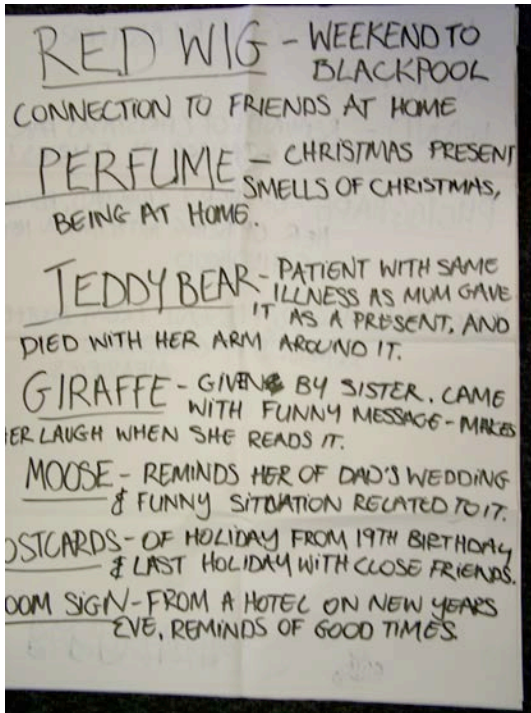 RED WIG - WEEKEND TO
BLACKPOOL
CONNECTION TO FRIENDS AT HOME
PERFUME - CHRISTMAS PRESENT
SMELLS OF CHRISTMAS,
BEING AT HOME.
TEDDY BEAR - PATIENT WITH SAME
ILLNESS AS MUM GAVE
IT AS A PRESENT. AND
DIED WITH HER ARM AROUND IT.
GIRAFFE - GIVEN BY SISTER. CAME
WITH FUNNY MESSAGE - MAKES
ER LAUGH WHEN SHE READS IT.
MOOSE - REMINDS HER OF DAD'S WEDDING
& FUNNY SITUATION RELATED TO IT.
OSTCARDS - OF HOLIDAY FROM 19TH BIRTHDAY
& LAST HOLIDAY WITH CLOSE FRIENDS.
OOM SIGN - FROM A HOTEL ON NEW YEARS
EVE, REMINDS OF GOOD TIMES.